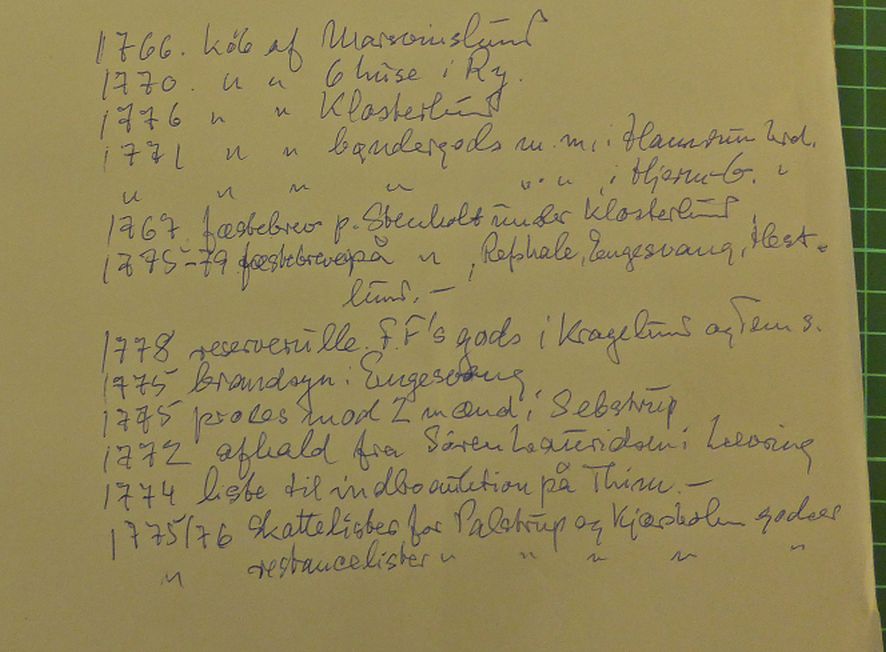 1766. køb af Marsvinslund
1770. " " 6 huse i Ry.
1776 " " Klosterlund
1771 " " bøndergods m.m. i Hammerum hrd.
" " " " " " i Hjerm-G. "
1767. fæstebrev p. Stenholt under Klosterlund
1775-79 fæstebreve på " , Refshale, Engesvang, Hest-
lund. -
1778 reserverulle. F.F's gods i Kragelund og Fem s.
1775 brandsyn i Engesvang
1775 proces mod 2 mænd i Sebstrup
1772 afkald fra Sören Lauridsen i Levring
1774 liste til indboauktion på Thim. -
1775/76 Skattelister for Palstrup og Kjærsholm godser
" restancelister " " " " "